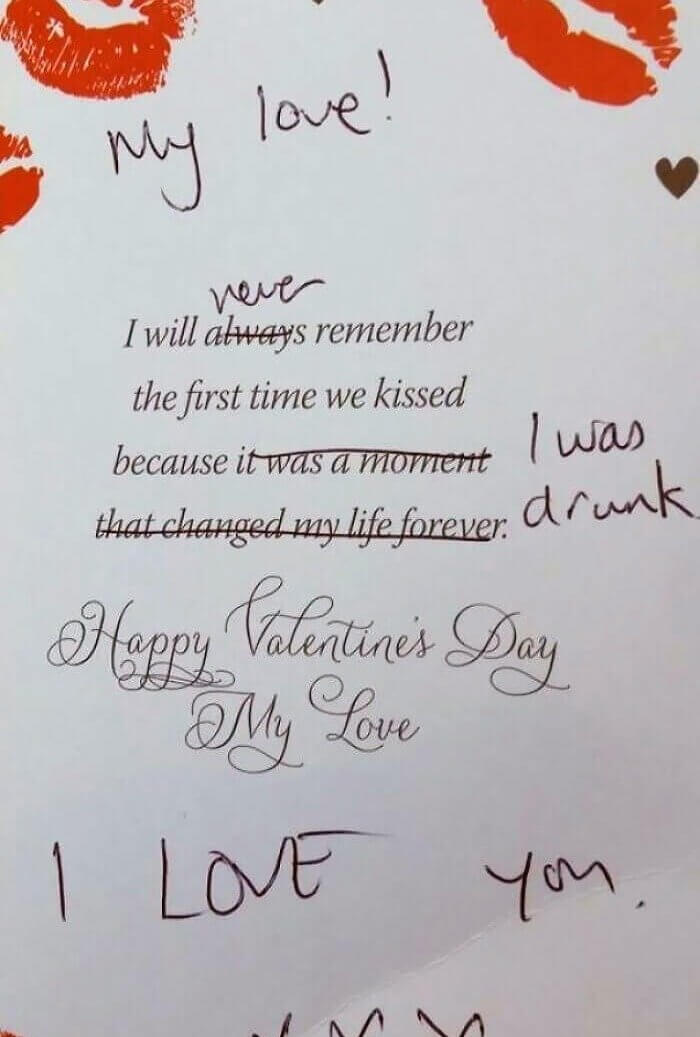 My love!
never
I will always remember
the first time we kissed
because it was a moment
I was
that changed my life forever.
drunk.
Happy Valentine's Day
My Love
I LOVE You.